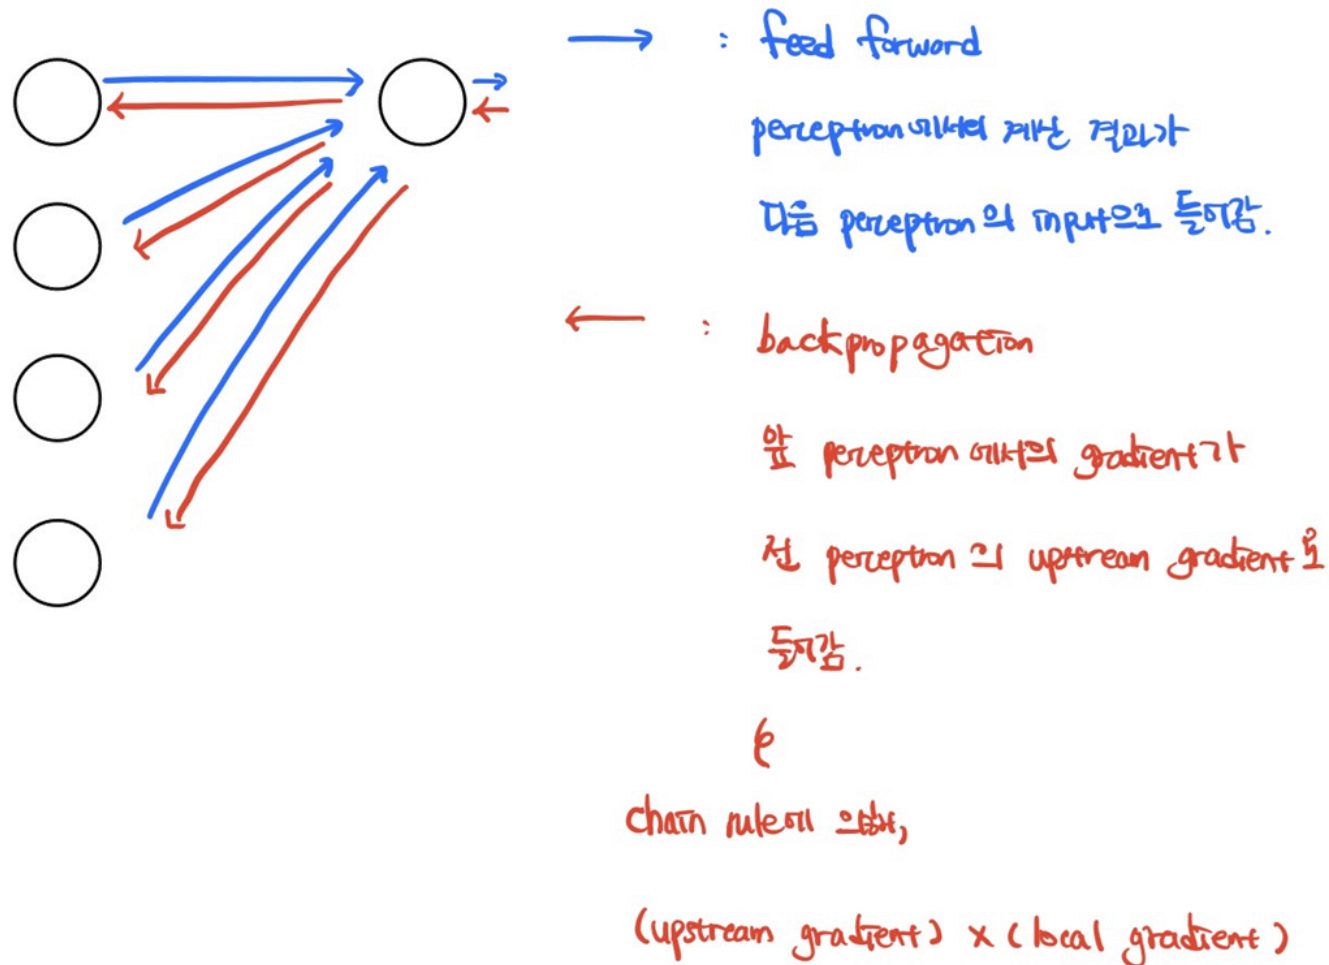 : feed forward
perceptron에서의 계산 결과가
다음 perceptron의 input으로 들어감.
: backpropagation
앞 perceptron에서의 gradient가
전 perceptron의 upstream gradient로
들어감.
chain rule에 의해,
(upstream gradient) x (local gradient)